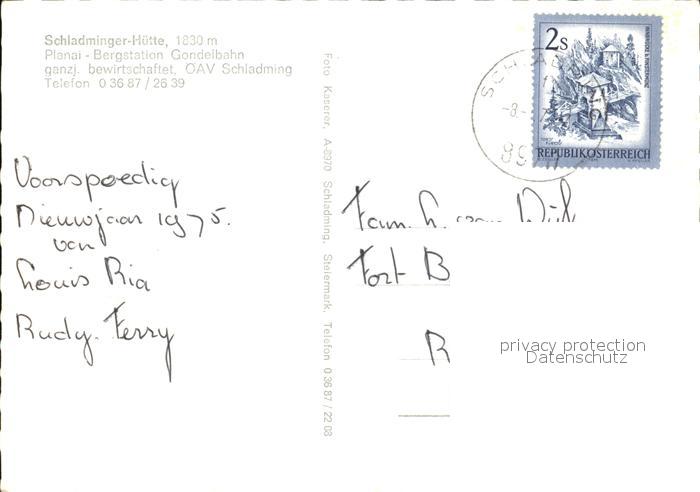 Schladminger-Hütte, 1830 m
Planai - Bergstation Gondelbahn
ganzj. bewirtschaftet, ÖAV Schladming
Telefon 0 36 87 / 26 39
Voorspoedig
Nieuwjaar 1975.
van
Louis Ria
Rudy. Ferry
Foto Kaserer, A-8970 Schladming, Steiermark, Telefon 0 36 87 / 22 08
2s
REPUBLIK ÖSTERREICH
SCHLADM
-8.-
89
Fam. L. van Dijk
Fort B
R
privacy protection
Datenschutz